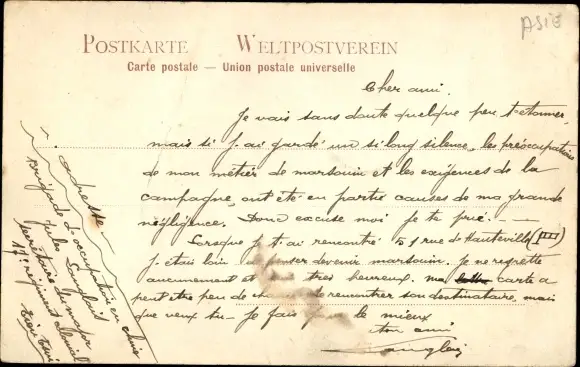 ASIE
POSTKARTE WELTPOSTVEREIN
Carte postale — Union postale universelle
Cher ami.
Je vais sans doute quelque peu t'etonner,
mais si j'ai gardé un si long silence, les préoccupations
de mon métier de marsouin et les exigences de la
campagne, ont été en partie causes de ma grande
négligence. Donc excuse moi je te prie. - -
Lorsque je t'ai rencontré 51 rue de Hauteville (III)
j'étais loin de penser devenir marsouin. Je ne regrette
aucunement et suis très heureux. ma carte a
peut être peu de chance de rencontrer son destinataire, mais
que veux tu - Je fais pour le mieux
ton ami
adresse
Brigade d'occupation en chine
Jules
Secrétaire du major
17e régiment